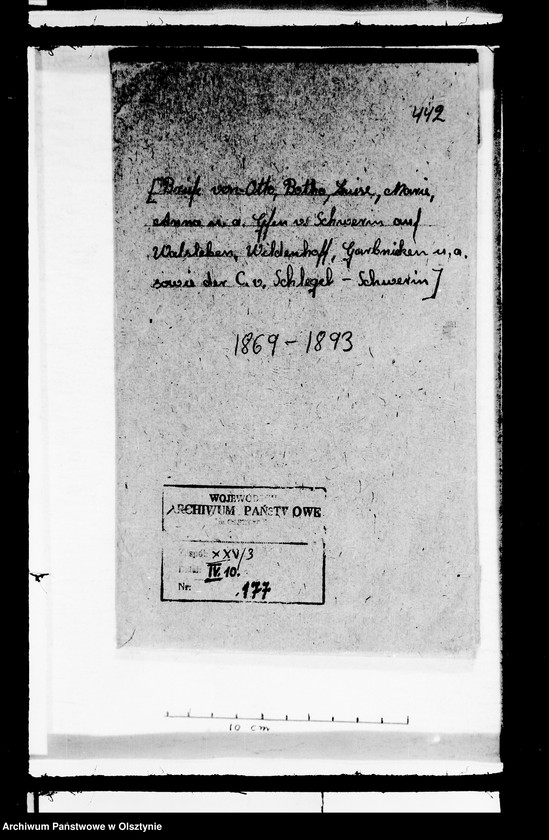 442
[Briefe von Otto, Botho, Luise, Marie,
Anna u. a. Gfen v. Schwerin auf
Walsleben, Wildenhoff, Garbnicken u. a.
sowie der C. v. Schlegel - Schwerin]
1869 - 1893
ARCHIWUM PAŃSTWOWE
XXV/3
IV. 10.
Nr: 177
10 cm
Archiwum Państwowe w Olsztynie